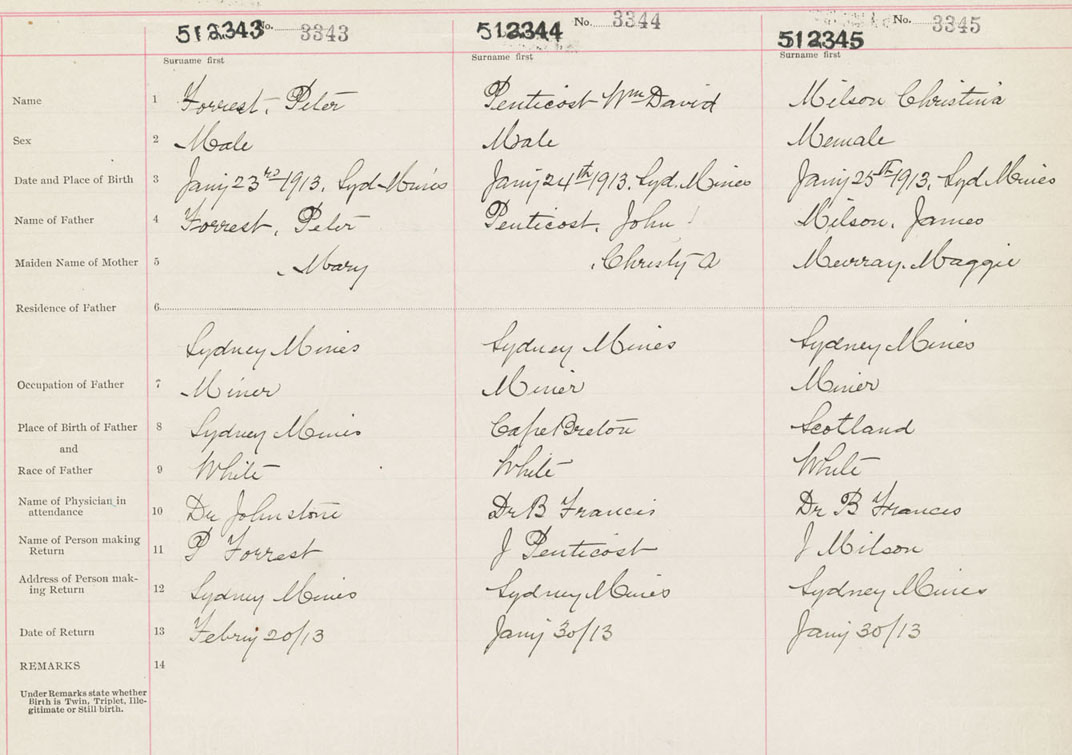 512343 No. 3343 512344 No. 3344 512345 No. 3345
Surname first Surname first Surname first
Name 1 Forrest, Peter Penticost Wm David Milson Christina
Sex 2 Male Male Memale
Date and Place of Birth 3 Jany 23rd 1913, Syd-Mines Jany 24th 1913. Syd. Mines Jany 25th 1913, Syd Mines
Name of Father 4 Forrest, Peter Penticost, John Milson, James
Maiden Name of Mother 5 Mary Christy A Murray. Maggie
Residence of Father 6
Sydney Mines Sydney Mines Sydney Mines
Occupation of Father 7 Miner Miner Miner
Place of Birth of Father 8 Sydney Mines Cape Breton Scotland
and
Race of Father 9 White White White
Name of Physician in
attendance 10 Dr Johnstone Dr B Francis Dr B Francis
Name of Person making
Return 11 P Forrest J Penticost J Milson
Address of Person mak-
ing Return 12 Sydney Mines Sydney Mines Sydney Mines
Date of Return 13 Febry 20/13 Jany 30/13 Jany 30/13
REMARKS 14
Under Remarks state whether
Birth is Twin, Triplet, Ille-
gitimate or Still birth.